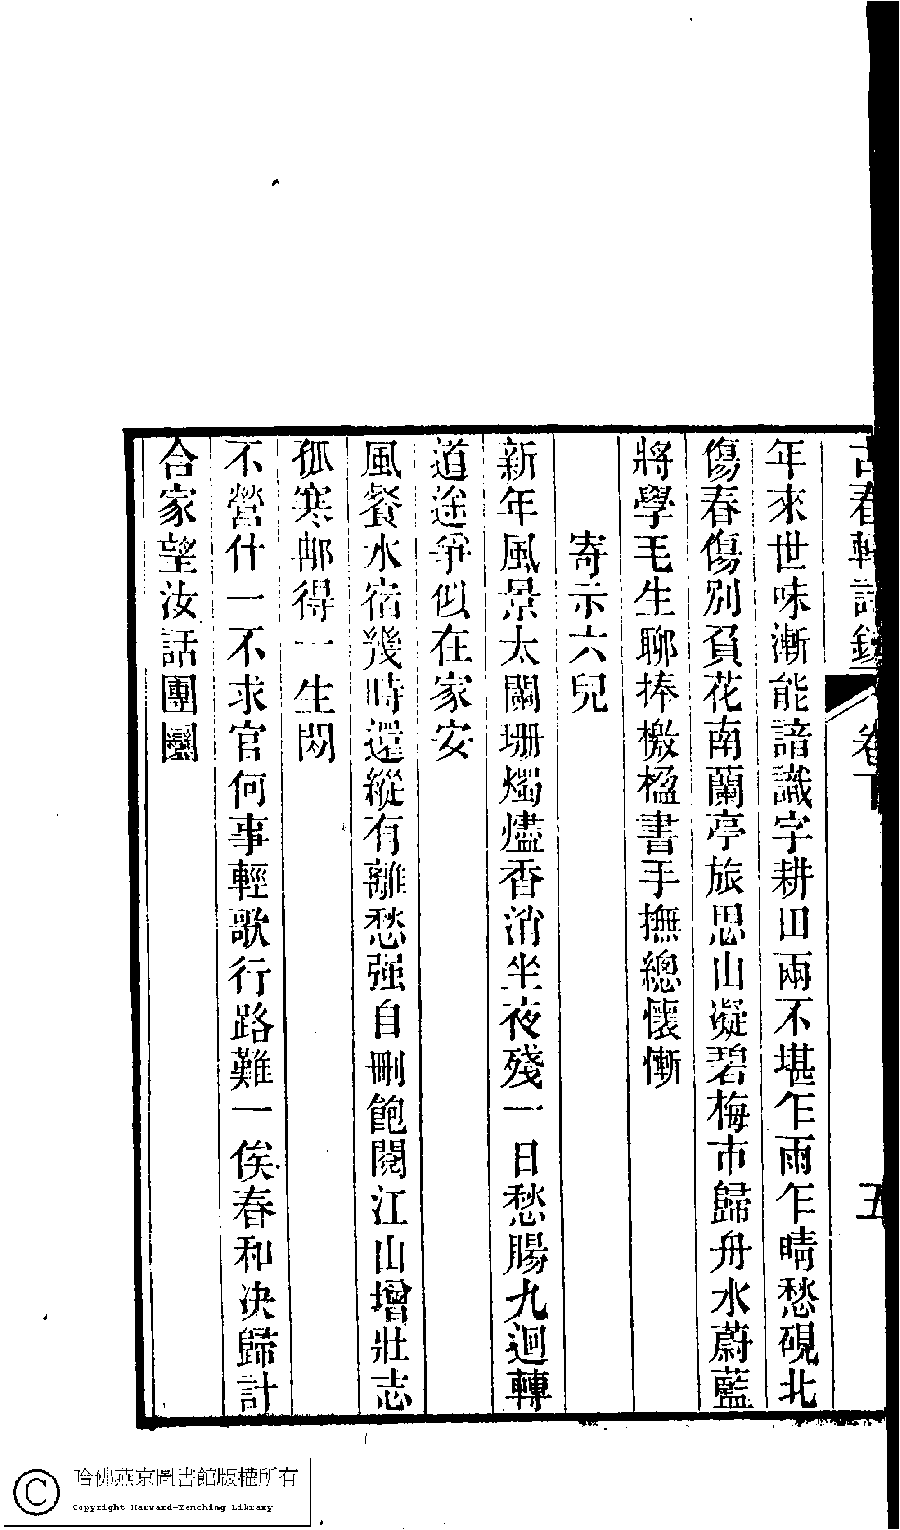 古春軒詩鈔 卷下 五
年來世味漸能諳識字耕田兩不堪乍雨乍晴愁硯北
傷春傷別負花南蘭亭旅思山凝碧梅市歸舟水蔚藍
將學毛生聊捧檄楹書手撫總懷慚
寄示六兒
新年風景太闌珊燭燼香消坐夜殘一日愁腸九迴轉
道途爭似在家安
風餐水宿幾時還縱有離愁强自刪飽閱江山增壯志
孤寒郍得一生閑
不營什一不求官何事輕歌行路難一俟春和决歸計
合家望汝話團圞
哈佛燕京圖書館版權所有
Copyright Harvard-Yenching Library